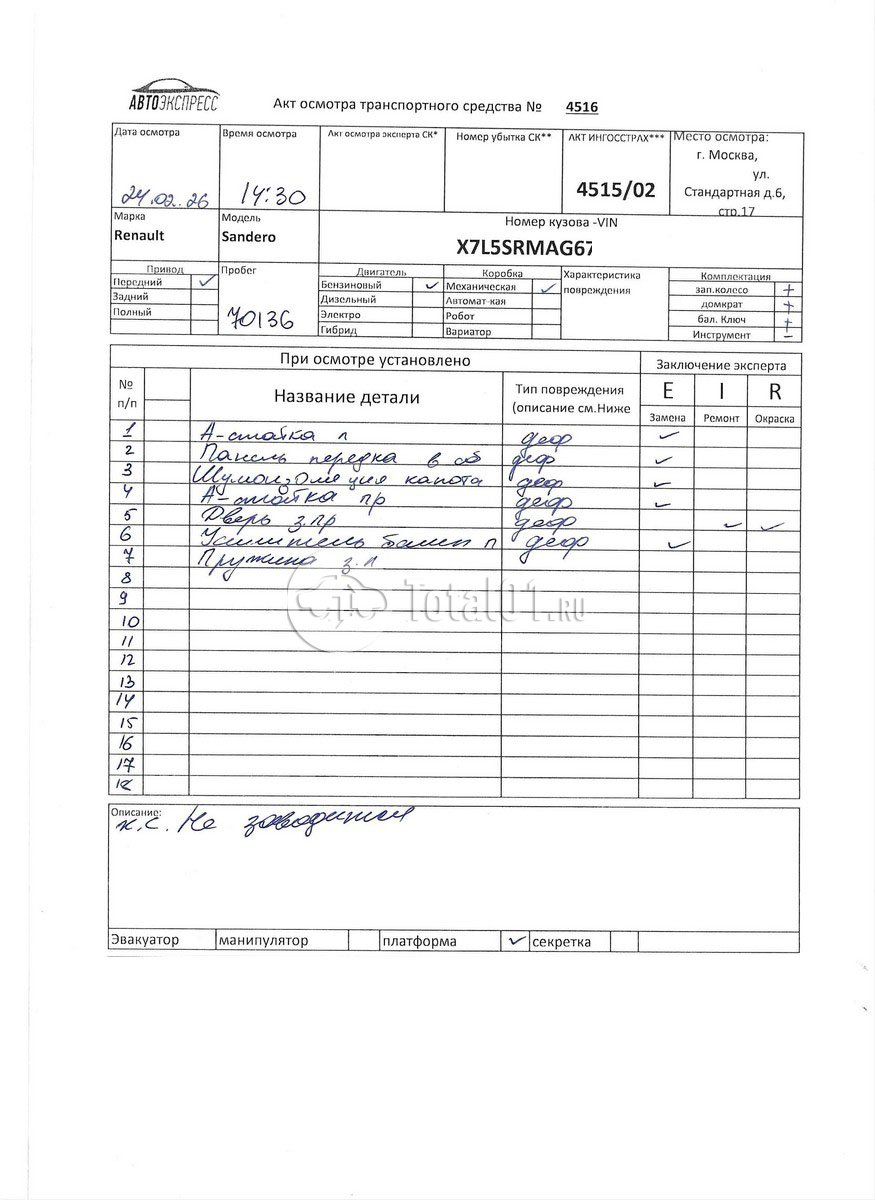 АВТОЭКСПРЕСС
Акт осмотра транспортного средства № 4516
Дата осмотра
24.02.26
Время осмотра
14:30
Акт осмотра эксперта СК*
Номер убытка СК**
АКТ ИНГОССТРАХ***
4515/02
Место осмотра:
г. Москва,
ул.
Стандартная д.6,
стр.17
Марка
Renault
Модель
Sandero
Номер кузова -VIN
X7L5SRMAG67
Привод
Передний ✓
Задний
Полный
Пробег
70136
Двигатель
Бензиновый ✓
Дизельный
Электро
Гибрид
Коробка
Механическая ✓
Автомат-кая
Робот
Вариатор
Характеристика
повреждения
Комплектация
зап.колесо +
домкрат +
бал. Ключ +
Инструмент –
При осмотре установлено
Заключение эксперта
№
п/п
Название детали
Тип повреждения
(описание см.Ниже
E I R
Замена Ремонт Окраска
1 А-стойка л деф ✓
2 Панель передка в сб деф ✓
3 Шумоизоляция капота деф ✓
4 А-стойка пр деф ✓
5 Дверь з.пр деф ✓ ✓
6 Усилитель п деф ✓
7 Пружина з.л
8
9
10
11
12
13
14
15
16
17
18
Total01.RU
Описание:
к.с. Не заводится
Эвакуатор манипулятор платформа ✓ секретка